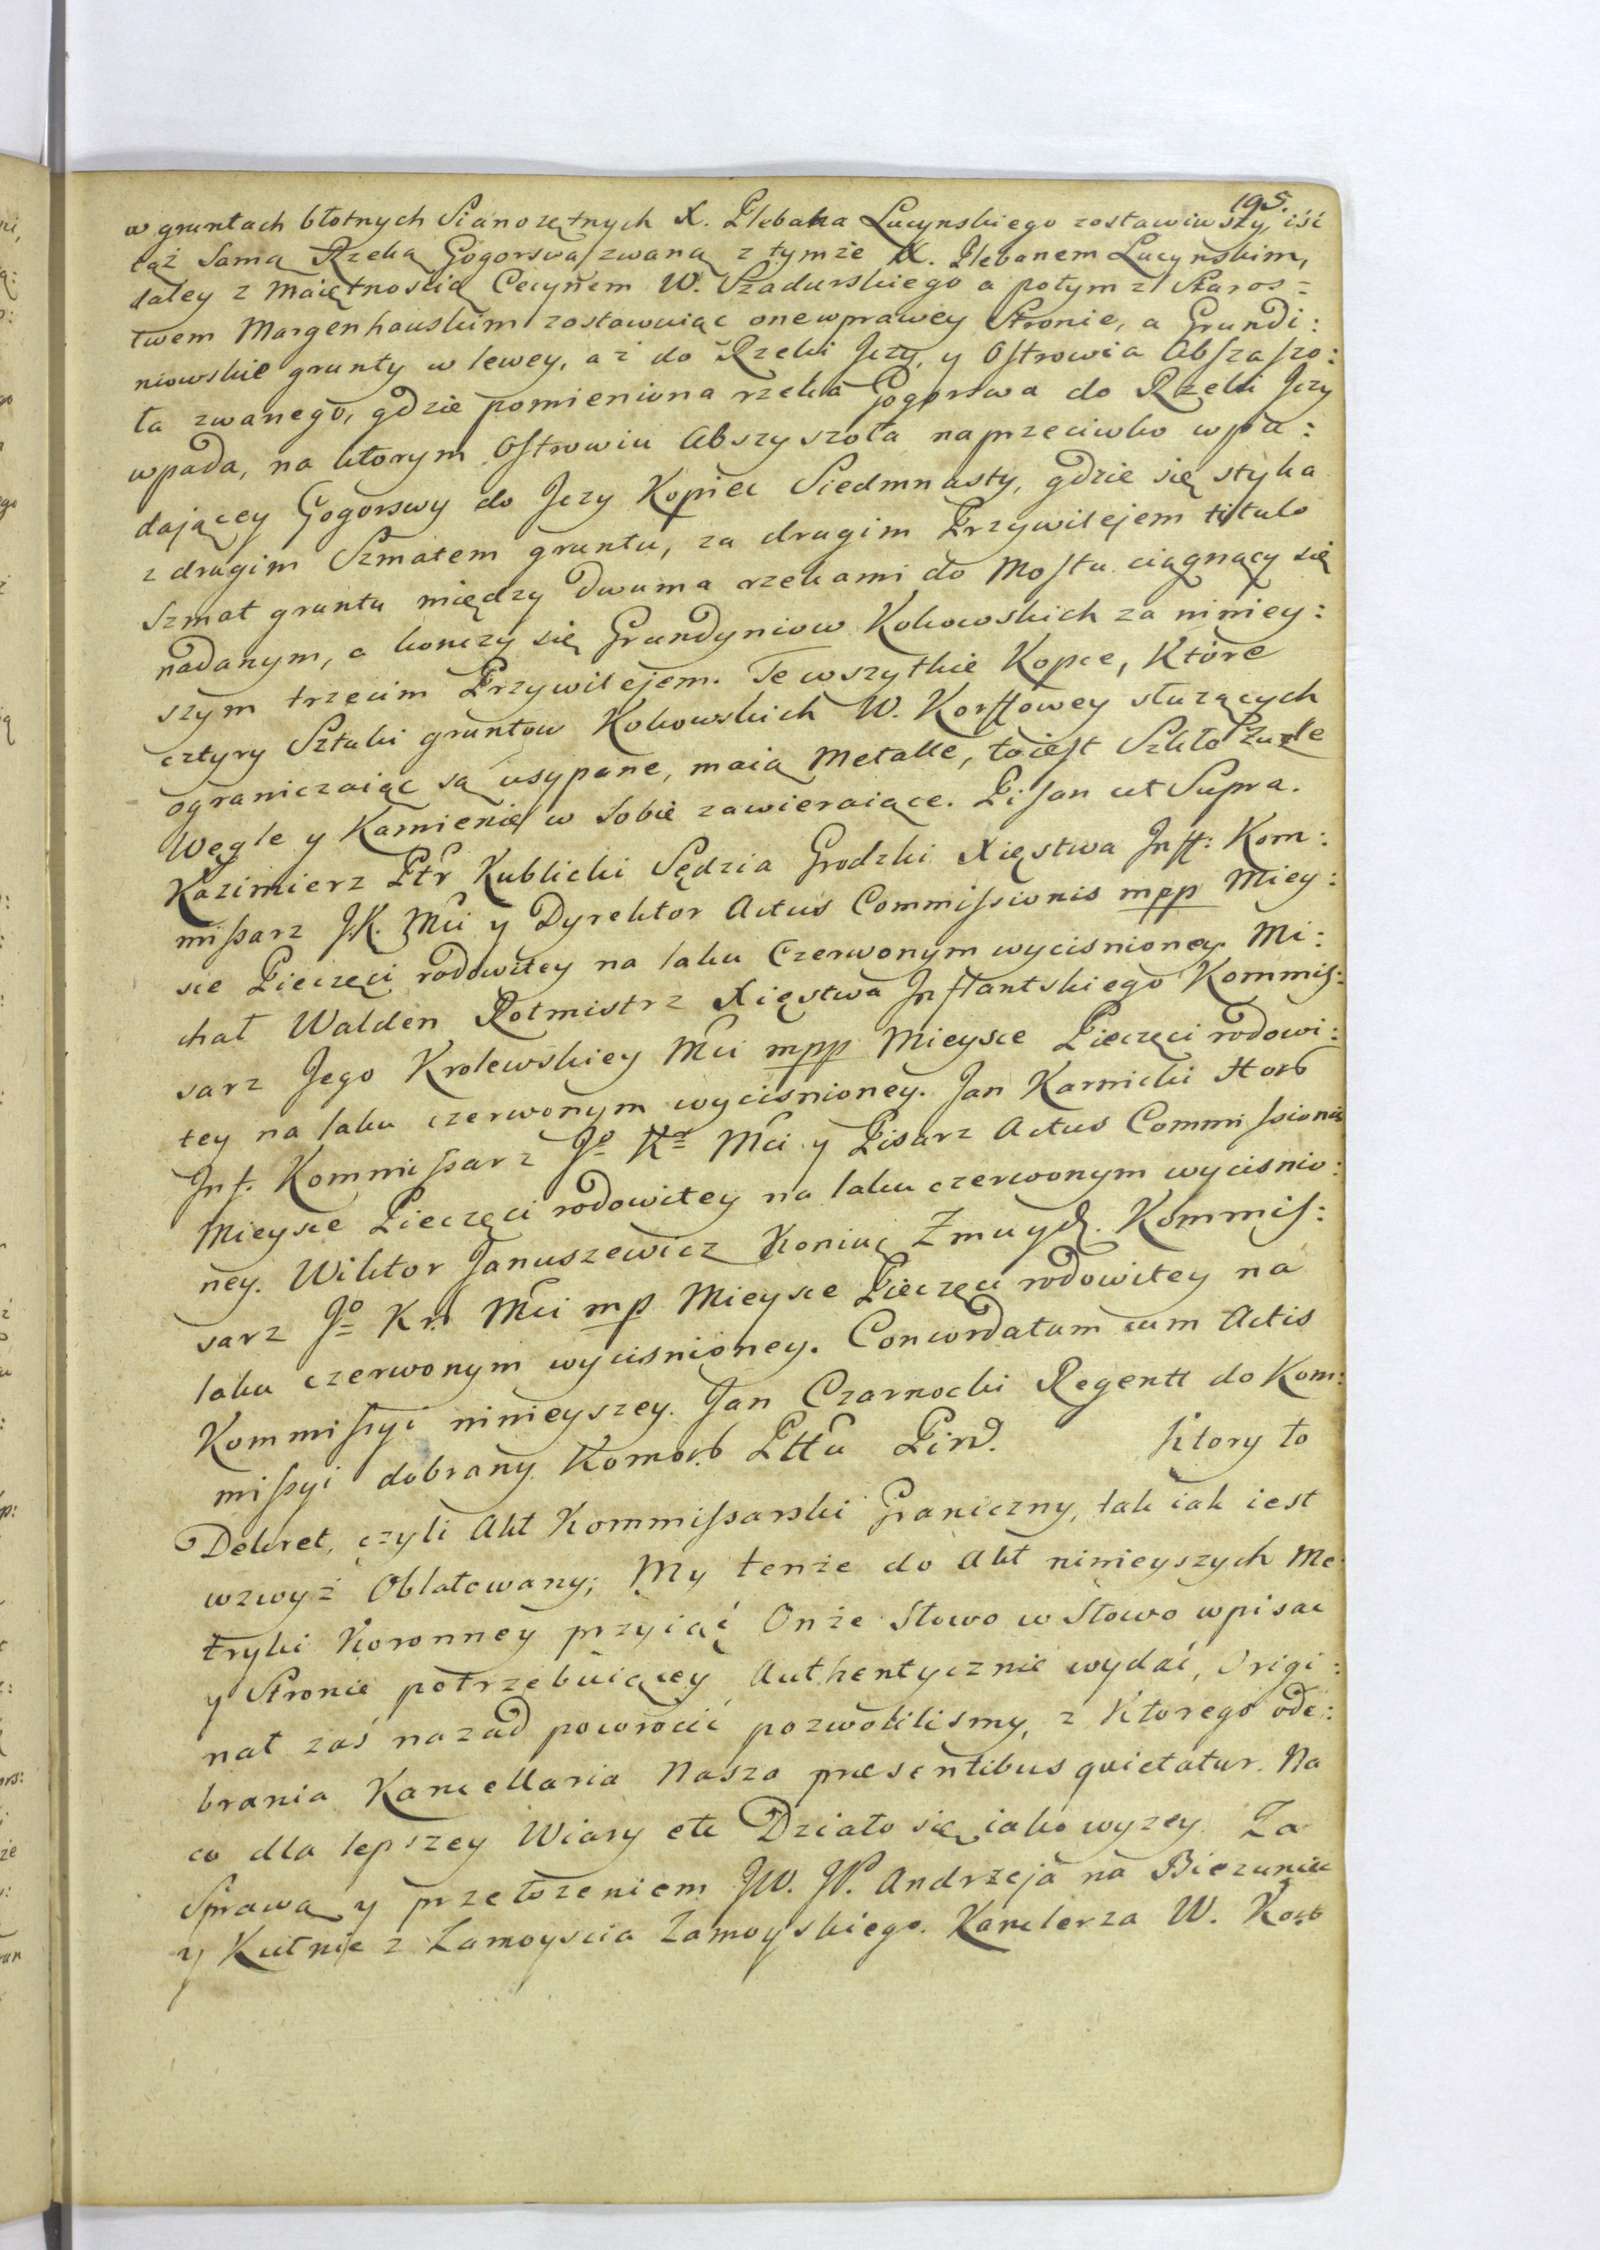 195.
w gruntach błotnych Sianozętnych X. Plebana Lucynskiego zostawiwszy, iść
tąż Samą Rzeką Gogorswa zwaną z tymże X. Plebanem Lucynskim,
daley z Maiętnoscią Cecynem W. Szadurskiego a potym z Staros=
twem Margenhauskim zostawuiąc one wprawey Stronie, a Grundi:
niowskie grunty w lewey, aż do Rzeki Jczy, y Ostrowia Abszaszo:
ła zwanego, gdzie pomieniona rzeka Gogorswa do Rzeki Jczy
wpada, na ktorym Ostrowiu Abszyszoła naprzeciwko wpa:
daiącey Gogorswy do Jczy Kopiec Siedmnasty, gdzie się styka
z drugim Szmatem gruntu, za drugim Przywilejem titulo
Szmat gruntu między dwuma rzekami do Mostu ciągnący się
nadanym, a konczy się Grundyniow Kokowskich za niniey:
szym trzecim Przywilejem. Te wszytkie Kopce, Które
cztyry Sztuki gruntow Kokowskich W. Korffowey służących
ograniczaiąc są usypane, maią Metalle, toiest Szkło Żużle
Węgle y Kamienie w sobie zawieraiące. Pisan ut Supra.
Kazimierz Ptr Kublicki Sędzia Grodzki Xięstwa Inff: Kom:
missarz J.K. Mci y Dyrektor Actus Commissionis mpp Miey:
sce Pieczęci rodowitey na laku Czerwonym wycisnioney. Mi:
chał Walden Rotmistrz Xięstwa Inflantskiego Kommis:
sarz Jego Krolewskiey Mci mpp Mieysce Pieczęci rodowi:
tey na laku czerwonym wycisnioney. Jan Karnicki Horb
Inf. Kommissarz Jo Kr Mci y Pisarz Actus Commissionis
Mieysce Pieczęci rodowitey na laku czerwonym wycisnio:
ney. Wiktor Januszewicz Koniuc Zmuydz. Kommis:
sarz Jo Kr. Mci mp Mieysce Pieczęci rodowitey na
laku czerwonym wycisnioney. Concordatum cum Actis
Kommissyi ninieyszey. Jan Czarnocki Regentt do Kom:
missyi dobrany Komorb Pttu Pind. Ktory to
Dekret, czyli Akt Kommissarski Graniczny, tak iak iest
wzwyż Oblatowany; My tenże do Akt ninieyszych Me
tryki Koronney przyiąć Onże Słowo w Słowo wpisac
y Stronie potrzebuiącey Authentycznie wydać, Origi:
nał zaś nazad powrocić pozwoliliśmy, z Ktorego ode:
brania Kancellaria Nasza præsentibus quietatur. Na
co dla lepszey Wiary etc Działo się iako wyzey. Za
Sprawą y przełożeniem JW. JP. Andrzeja na Biezuniu
y Kutnie z Zamoyscia Zamoyskiego. Kanclerza W. Korb